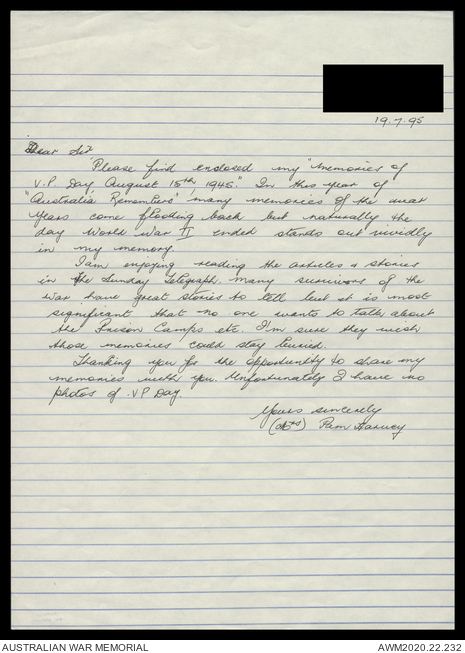 19.7.95
Dear Sir
"Please find enclosed my "Memories of
V.P. Day, August 15th, 1945." In this year of
"Australia Remembers" many memories of the war
years come flooding back but naturally the
day World War II ended stands out vividly
in my memory.
I am enjoying reading the articles & stories
in the Sunday Telegraph. Many survivors of the
war have great stories to tell but it is most
significant that no one wants to talk about
the Prison Camps etc. I'm sure they wish
those memories could stay buried.
Thanking you for the opportunity to share my
memories with you. Unfortunately I have no
photos of V P Day.
Yours sincerely
(Mrs) Pam Harvey
AUSTRALIAN WAR MEMORIAL
AWM2020.22.232